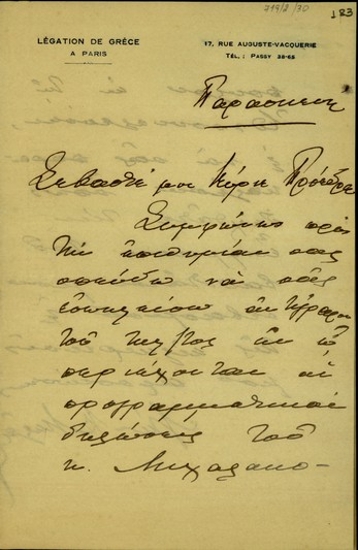 219/2/70
183
LÉGATION DE GRÈCE
A PARIS
17, RUE AUGUSTE-VACQUERIE
TÉL.: PASSY 26-65
Παρασκευη
Σεβαστέ μοι Κύριε Πρόεδρε
Συμφώνως πρὸς
τὴν ἐπιθυμίαν σας
σπεύδω νὰ σᾶς
ἐσωκλείσω ἀντίγραφον
τοῦ τηλ/τος ἐν ᾧ
περιέχονται αἱ
προγραμματικαὶ
δηλώσεις τοῦ
κ. Μιχαλακο-